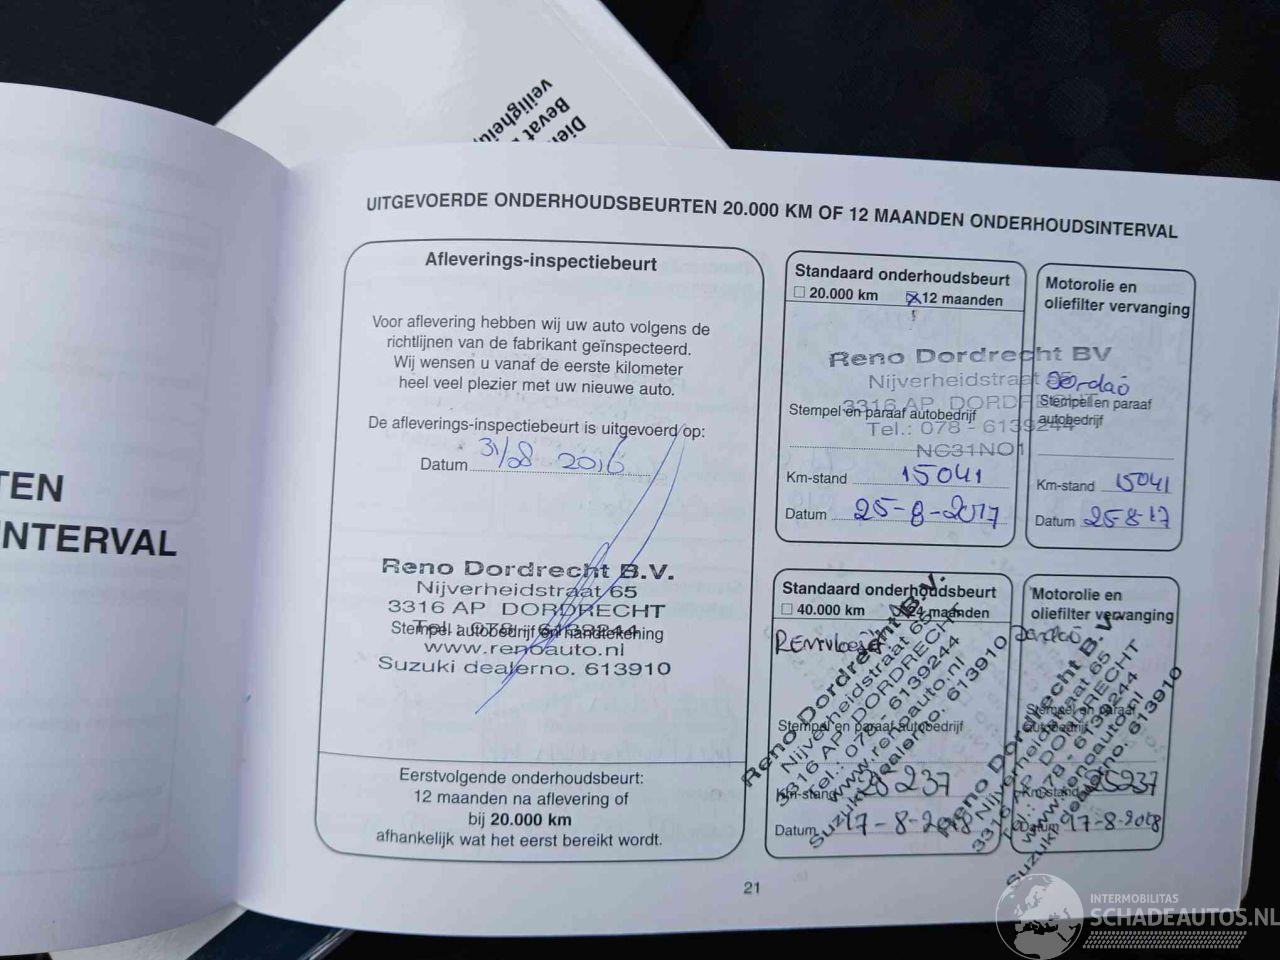 Dien
Bevat
veiligheid
TEN
INTERVAL
UITGEVOERDE ONDERHOUDSBEURTEN 20.000 KM OF 12 MAANDEN ONDERHOUDSINTERVAL
Afleverings-inspectiebeurt
Voor aflevering hebben wij uw auto volgens de
richtlijnen van de fabrikant geïnspecteerd.
Wij wensen u vanaf de eerste kilometer
heel veel plezier met uw nieuwe auto.
De afleverings-inspectiebeurt is uitgevoerd op:
Datum 31/08 2016
Reno Dordrecht B.V.
Nijverheidstraat 65
3316 AP DORDRECHT
Tel.: 078 - 6139244
Stempel autobedrijf en handtekening
www.renoauto.nl
Suzuki dealerno. 613910
Eerstvolgende onderhoudsbeurt:
12 maanden na aflevering of
bij 20.000 km
afhankelijk wat het eerst bereikt wordt.
Standaard onderhoudsbeurt
20.000 km 12 maanden
Reno Dordrecht BV
Nijverheidstraat 65
3316 AP DORDRECHT
Stempel en paraaf autobedrijf
Tel.: 078 - 6139244
NG31NO1
Km-stand 15041
Datum 25-8-2017
Motorolie en
oliefilter vervanging
Stempel en paraaf
autobedrijf
Km-stand 15041
Datum 25-8-17
Standaard onderhoudsbeurt
40.000 km 24 maanden
Reno Dordrecht B.V.
Nijverheidstraat 65
3316 AP DORDRECHT
Tel.: 078 - 6139244
www.renoauto.nl
Suzuki dealerno. 613910
Stempel en paraaf autobedrijf
Km-stand 28237
Datum 17-8-2018
Motorolie en
oliefilter vervanging
Reno Dordrecht B.V.
Nijverheidstraat 65
3316 AP DORDRECHT
Tel.: 078 - 6139244
www.renoauto.nl
Suzuki dealerno. 613910
Stempel en paraaf
autobedrijf
Km-stand
Datum 17-8-2018
21
INTERMOBILITAS
SCHADEAUTOS.NL